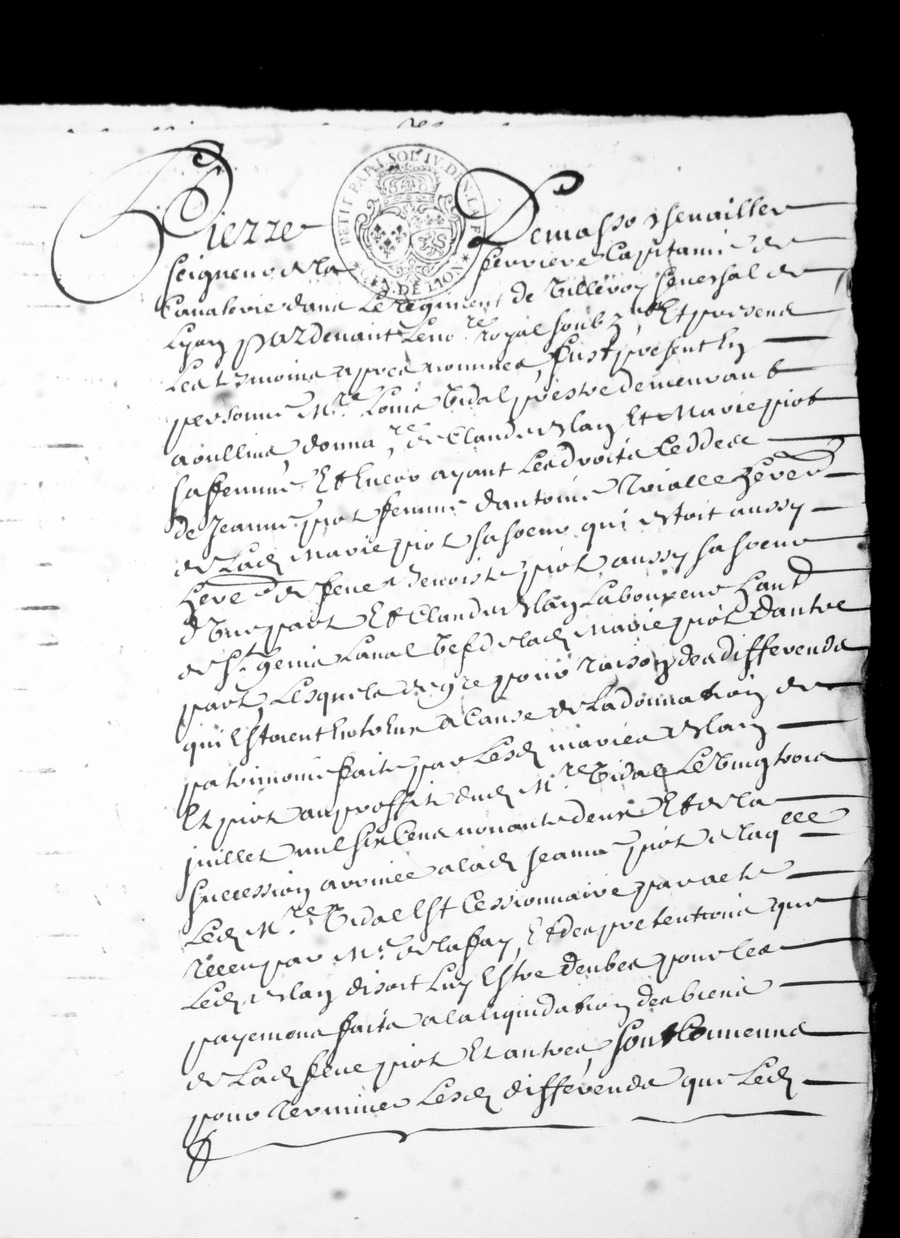 PETIT PAP. 1. SOL IV. DEN. LA F
G.N. DE LION
Pierre Demasso chevallier
seigneur de la ferriere Capitaine de
Cavalerie dans Le regiment de Villeroy seneschal de
Lyon pardevant Le no.re Royal soubz.né Et presens
Les tesmoins apres nommes, fust present En
personne M.re Louis Vidal prestre demeurant
a oullins, donna.re de Claude Vslay Et Marie piot
sa femme Et Encor ayant Les droits Ceddes
de Jeanne piot femme d'antoine Nialle herer
de Lad marie piot sa soeur qui Estoit aussy
here.re de feue Benoiste piot aussy sa soeur
d'Vne part Et Claude Vslay Laboureur habt
de St genis Laval Vefd de lad Marie piot dautre
part, Lesquels de gre pour raison des differends
qui Estoient Entr'Eux a Cause de La donnation de
patrimoine faite par Lesd maries Vslay
Et piot au proffit dud M.re Vidal Le Vingt trois
juillet mil six Cens nonante deux Et de la
succession arrivee a lad Jeanne piot de laqlle
Led M.re Vidal Est Cessionnaire par acte
receu par M.e de lafay, Et des pretentions que
Led Vslay disoit Luy Estre deubes pour les
payemens faits a la liquidation des biens
de Lad feue piot Et autres, sont Convenus
pour terminer Lesd differends que Led